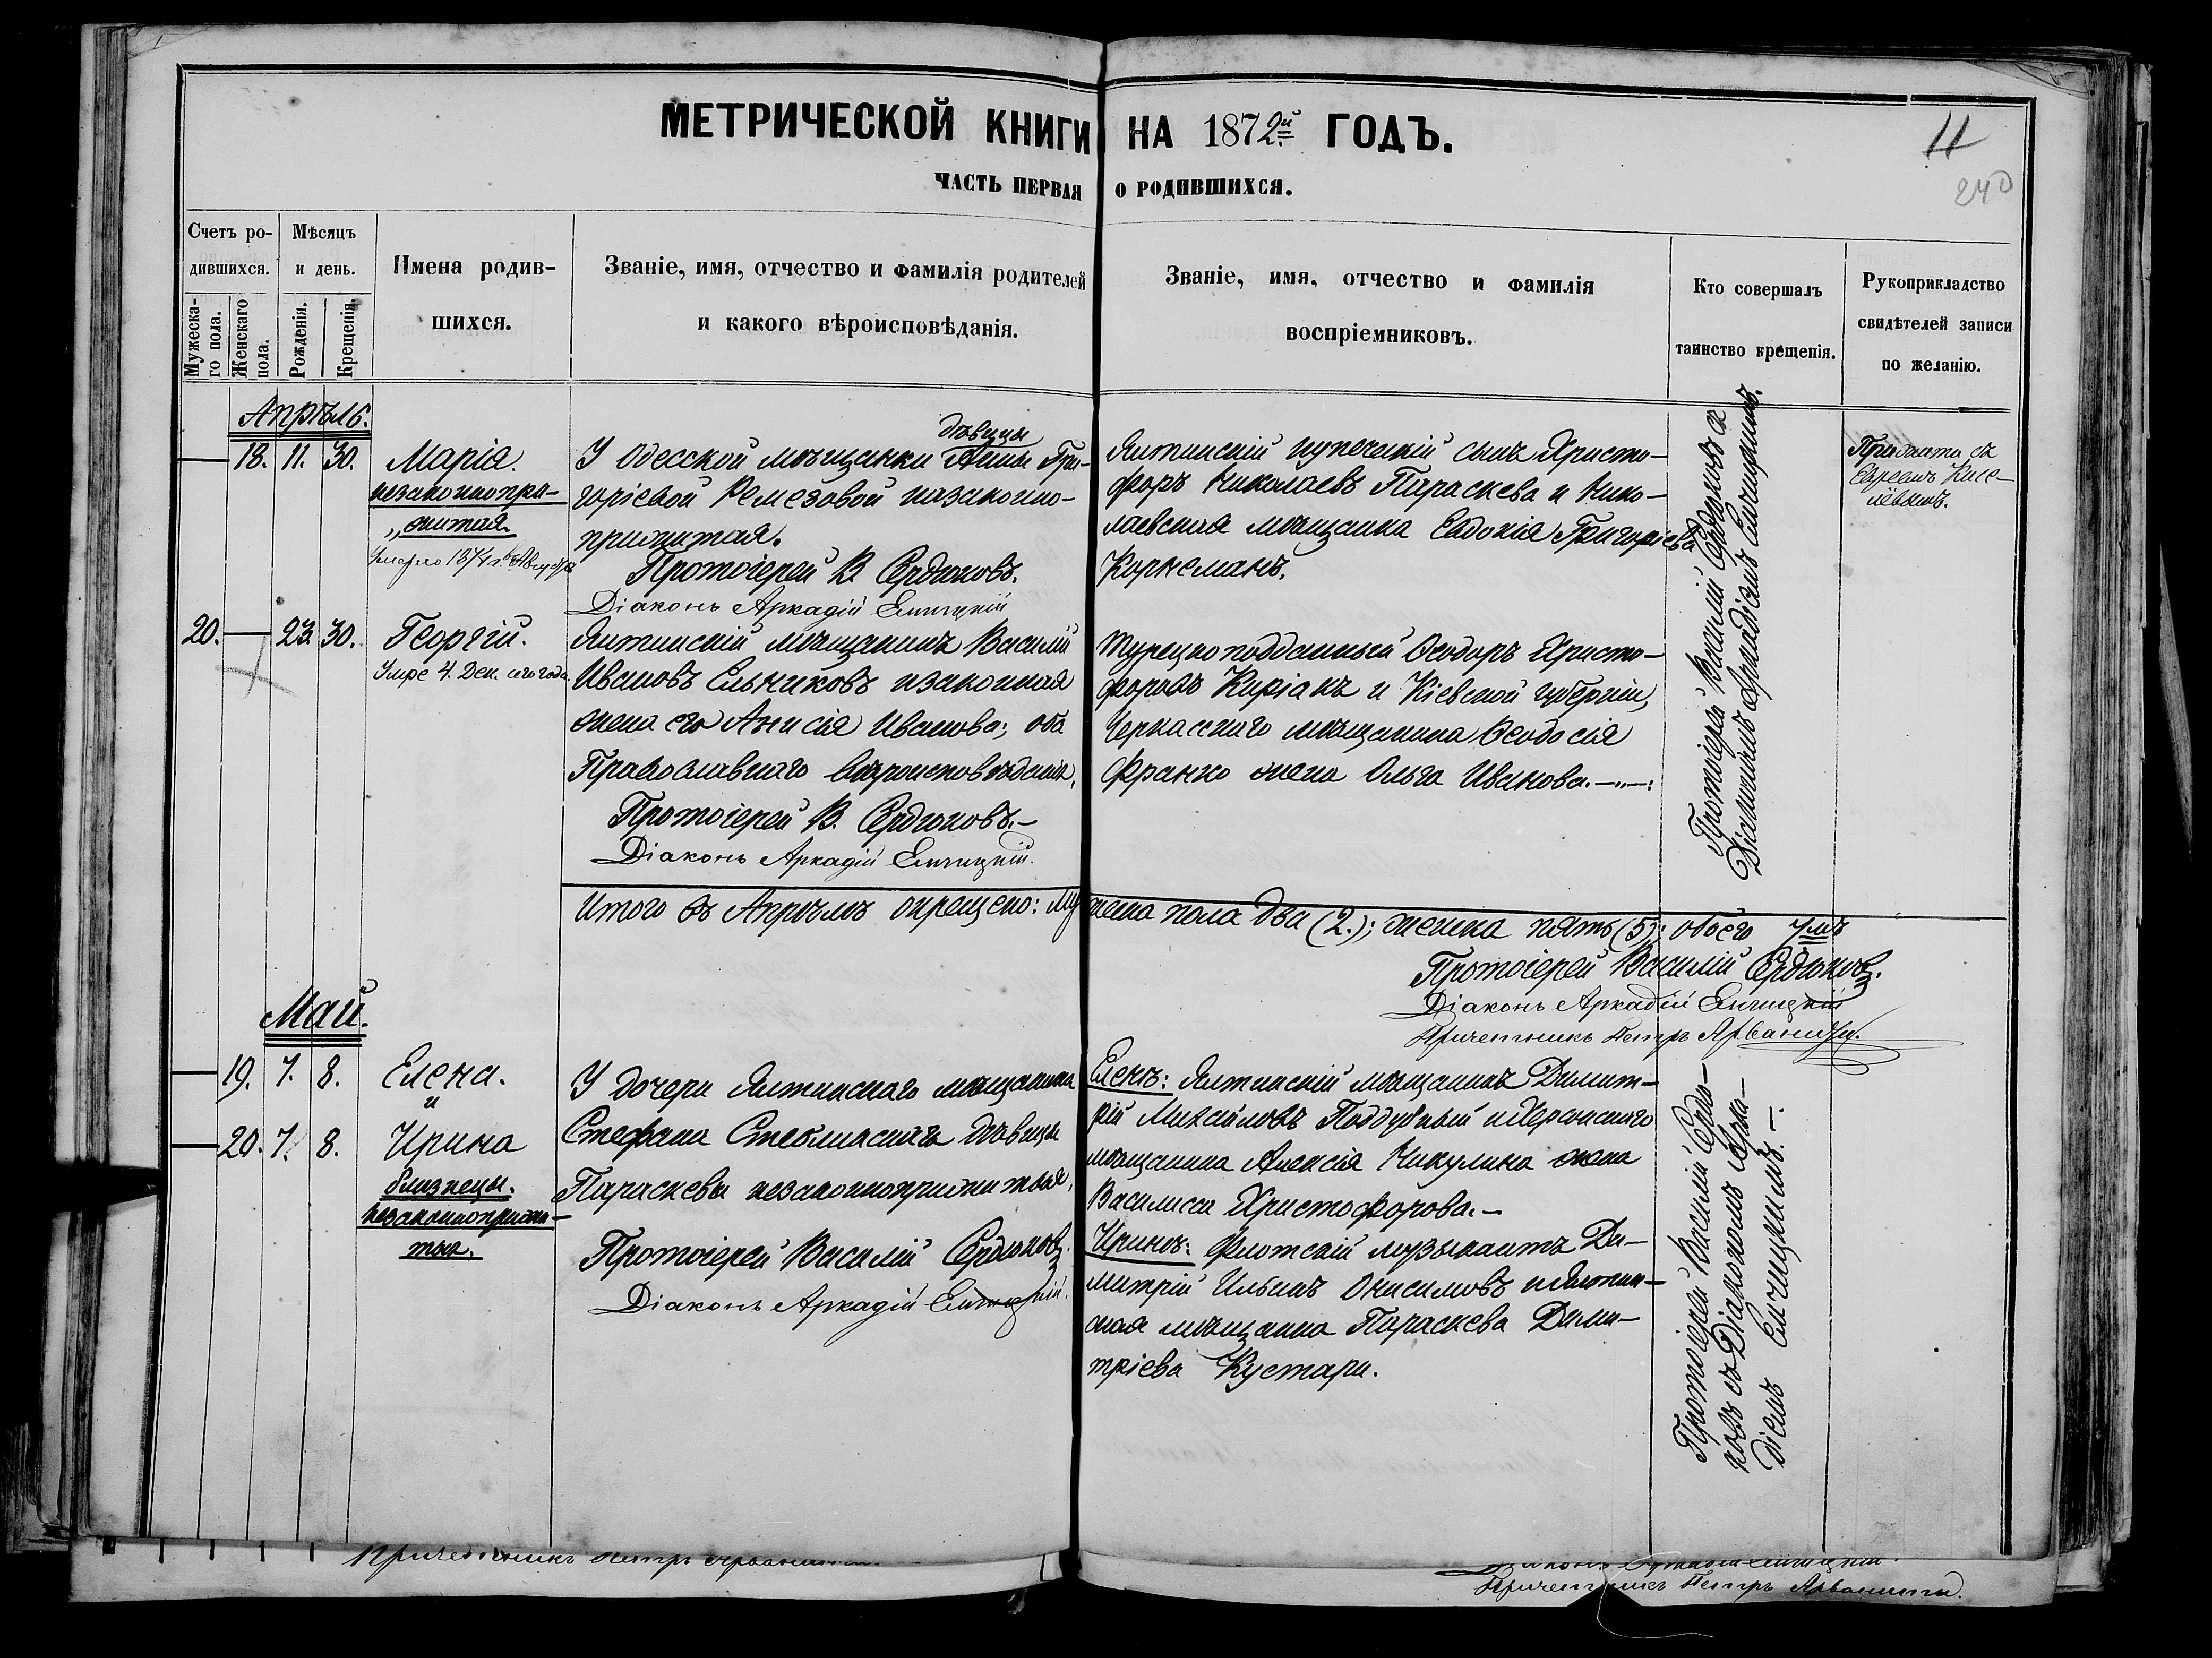 МЕТРИЧЕСКОЙ КНИГИ НА 1872й ГОДЪ.
11
240
ЧАСТЬ ПЕРВАЯ О РОДИВШИХСЯ.
Счетъ ро-
дившихся.
Мужеска-
го пола.
Женскаго
пола.
Мѣсяцъ
и день.
Рожденія.
Крещенія.
Имена родив-
шихся.
Званіе, имя, отчество и фамилія родителей
и какого вѣроисповѣданія.
Званіе, имя, отчество и фамилія
воспріемниковъ.
Кто совершалъ
таинство крещенія.
Рукоприкладство
свидѣтелей записи
по желанію.
Апрѣль.
18. 11. 30.
Марія.
незаконнопри-
житая.
Умерла 1874 г. Августа
дѣвицы
У Одесской мѣщанки Анны Гри-
горіевой Ремезовой незаконно-
прижитая.
Протоіерей В. Сердюковъ.
Діаконъ Аркадій Енчицкій
Ялтинскій купеческій сынъ Христо-
форъ Николаевъ Параскева и Нико-
лаевская мѣщанка Евдокія Григоріева
Коркеманъ.
Протоіерей Василій Сердюковъ съ
Діакономъ Аркадіемъ Енчицкимъ.
Прижита съ
Евреемъ Кисе-
лёвымъ.
20. 23. 30.
Георгій.
Умре 4. Дек. сего года.
Ялтинскій мѣщанинъ Василій
Ивановъ Ельниковъ и законная
жена его Анисія Иванова; оба
Православнаго вѣроисповѣданія.
Протоіерей В. Сердюковъ.–
Діаконъ Аркадій Енчицкій.
Турецкоподданный Ѳеодоръ Христо-
форовъ Киріакъ и Кіевской губерніи,
Черкасскаго мѣщанина Ѳеодосія
Франко жена Ольга Иванова.
Итого въ Апрѣлѣ окрещено: мужеска пола два (2.); женска пять (5); обоего 7мь
Протоіерей Василій Сердюковъ.
Діаконъ Аркадій Енчицкій
Причетникъ Петръ Арванити.
Май.
19. 7. 8.
Елена.
и
20. 7. 8.
Ирина
близнецы.
незаконноприжи-
тыя.
У дочери Ялтинскаго мѣщанина
Стефана Стеблинскаго дѣвицы
Параскевы незаконноприжитыя.
Протоіерей Василій Сердюковъ.
Діаконъ Аркадій Енчицкій.
Еленѣ: Ялтинскій мѣщанинъ Димит-
рій Михайловъ Поддубный и Херсонскаго
мѣщанина Алексія Никулина жена
Василиса Христофорова.–
Иринѣ: Флотскій музыкантъ Ди-
митрій Ильинъ Онисимовъ и Ялтин-
ская мѣщанка Параскева Дими-
тріева Кустари.
Протоіерей Василій Сердю-
ковъ съ Діакономъ Арка-
діемъ Енчицкимъ.–
Причетникъ Петръ Арванити.
Причетникъ Петръ Арванити.